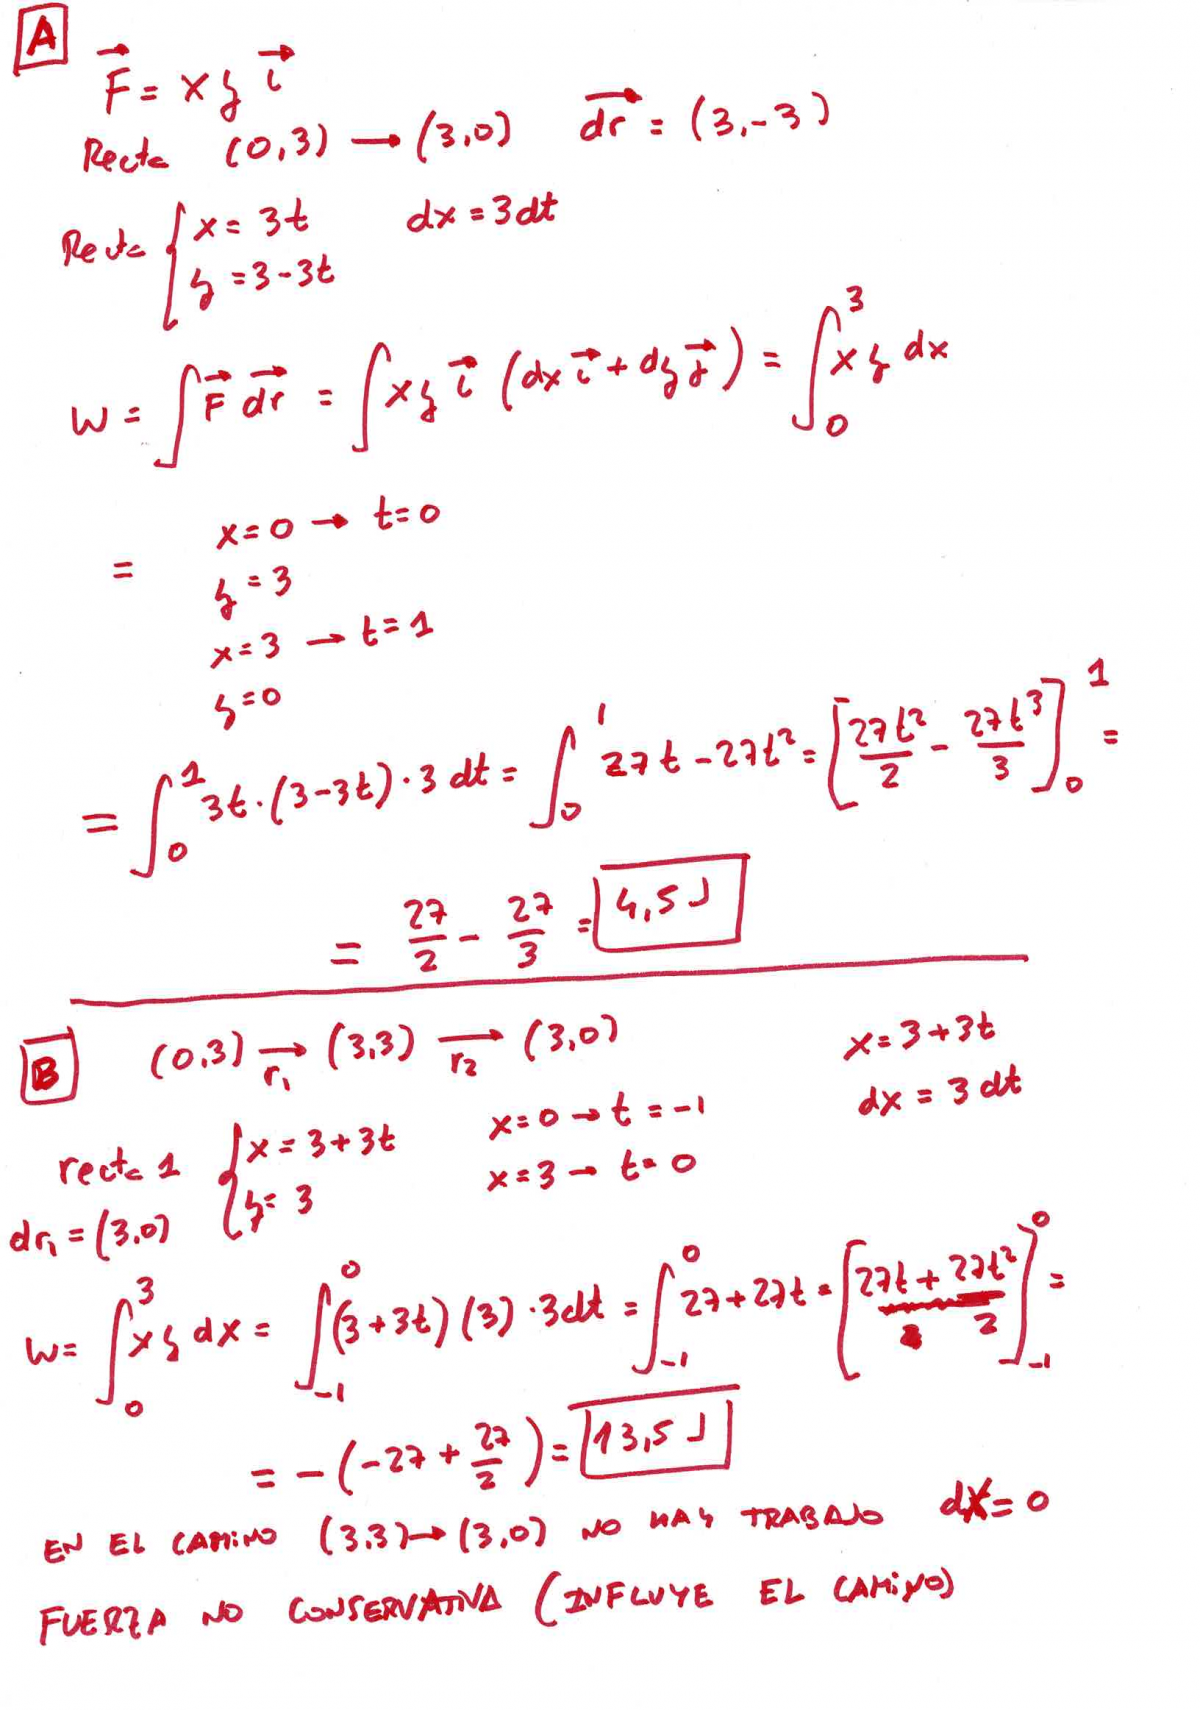 A
F⃗ = xy i⃗
Recta (0,3) → (3,0) dr⃗ = (3,-3)
Recta { x = 3t dx = 3dt
y = 3-3t
W = ∫ F⃗ dr⃗ = ∫ xy i⃗ (dx i⃗ + dy j⃗) = ∫₀³ xy dx
= x=0 → t=0
y=3
x=3 → t=1
y=0
= ∫₀¹ 3t·(3-3t)·3 dt = ∫₀¹ 27t - 27t² = [27t²/2 - 27t³/3]₀¹ =
= 27/2 - 27/3 = 4,5 J
B (0,3) →r₁ (3,3) →r₂ (3,0) x = 3+3t
dx = 3 dt
recta 1 { x = 3+3t x=0 → t=-1
y = 3 x=3 → t=0
dr₁ = (3,0)
W = ∫₀³ xy dx = ∫₋₁⁰ (3+3t)(3)·3dt = ∫₋₁⁰ 27+27t = [27t + 27t²/2]₋₁⁰ =
= -(-27 + 27/2) = 13,5 J
EN EL CAMINO (3,3) → (3,0) NO HAY TRABAJO dx=0
FUERZA NO CONSERVATIVA (INFLUYE EL CAMINO)